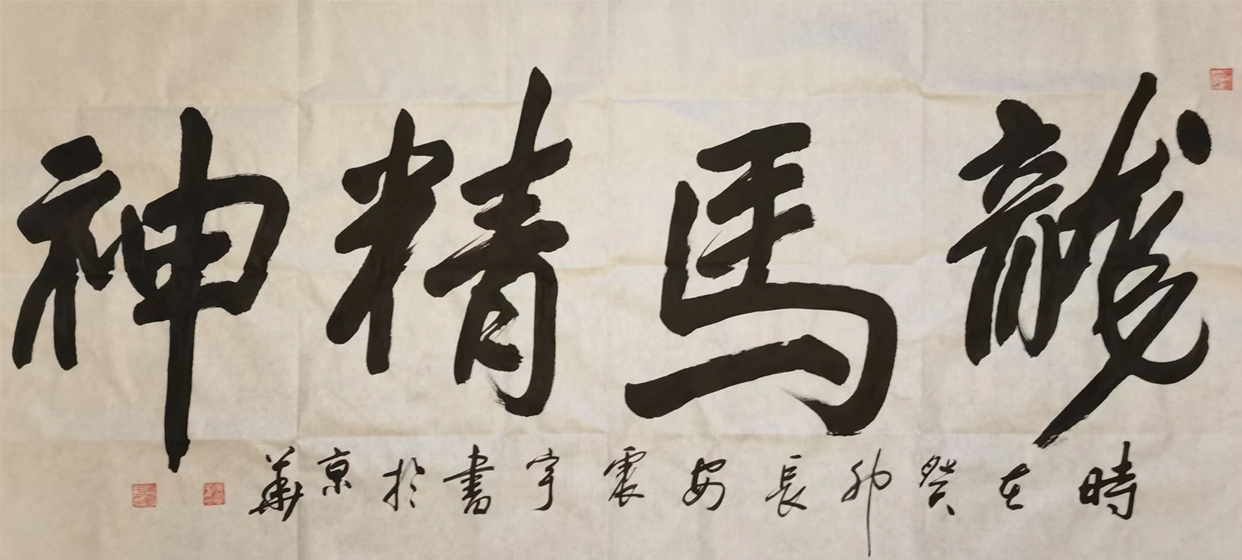 龍馬精神
時在癸卯長安震宇書於京華